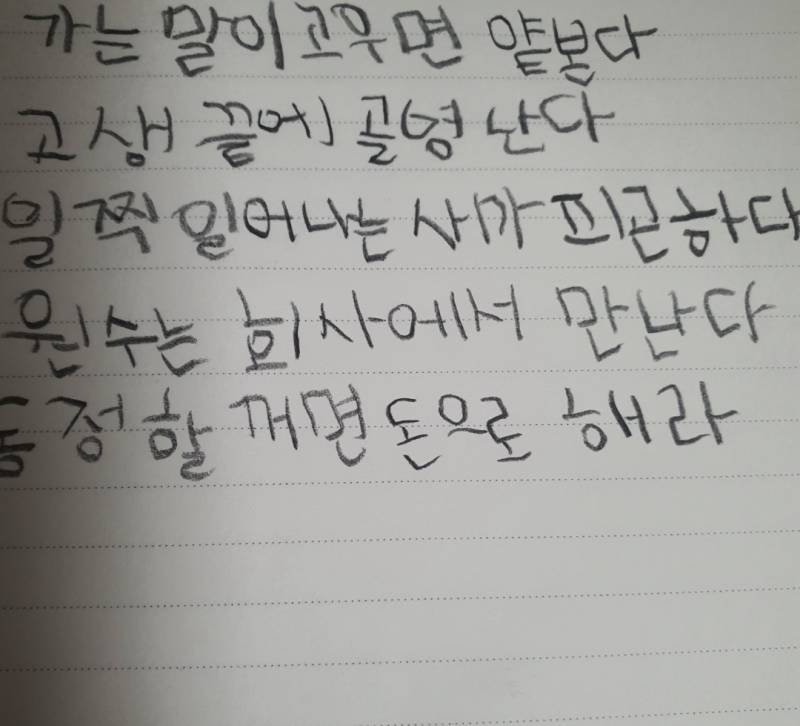 가는 말이 고우면 얕본다
고생 끝에 골병 난다
일찍 일어나는 새가 피곤하다
원수는 회사에서 만난다
동정할 꺼면 돈으로 해라